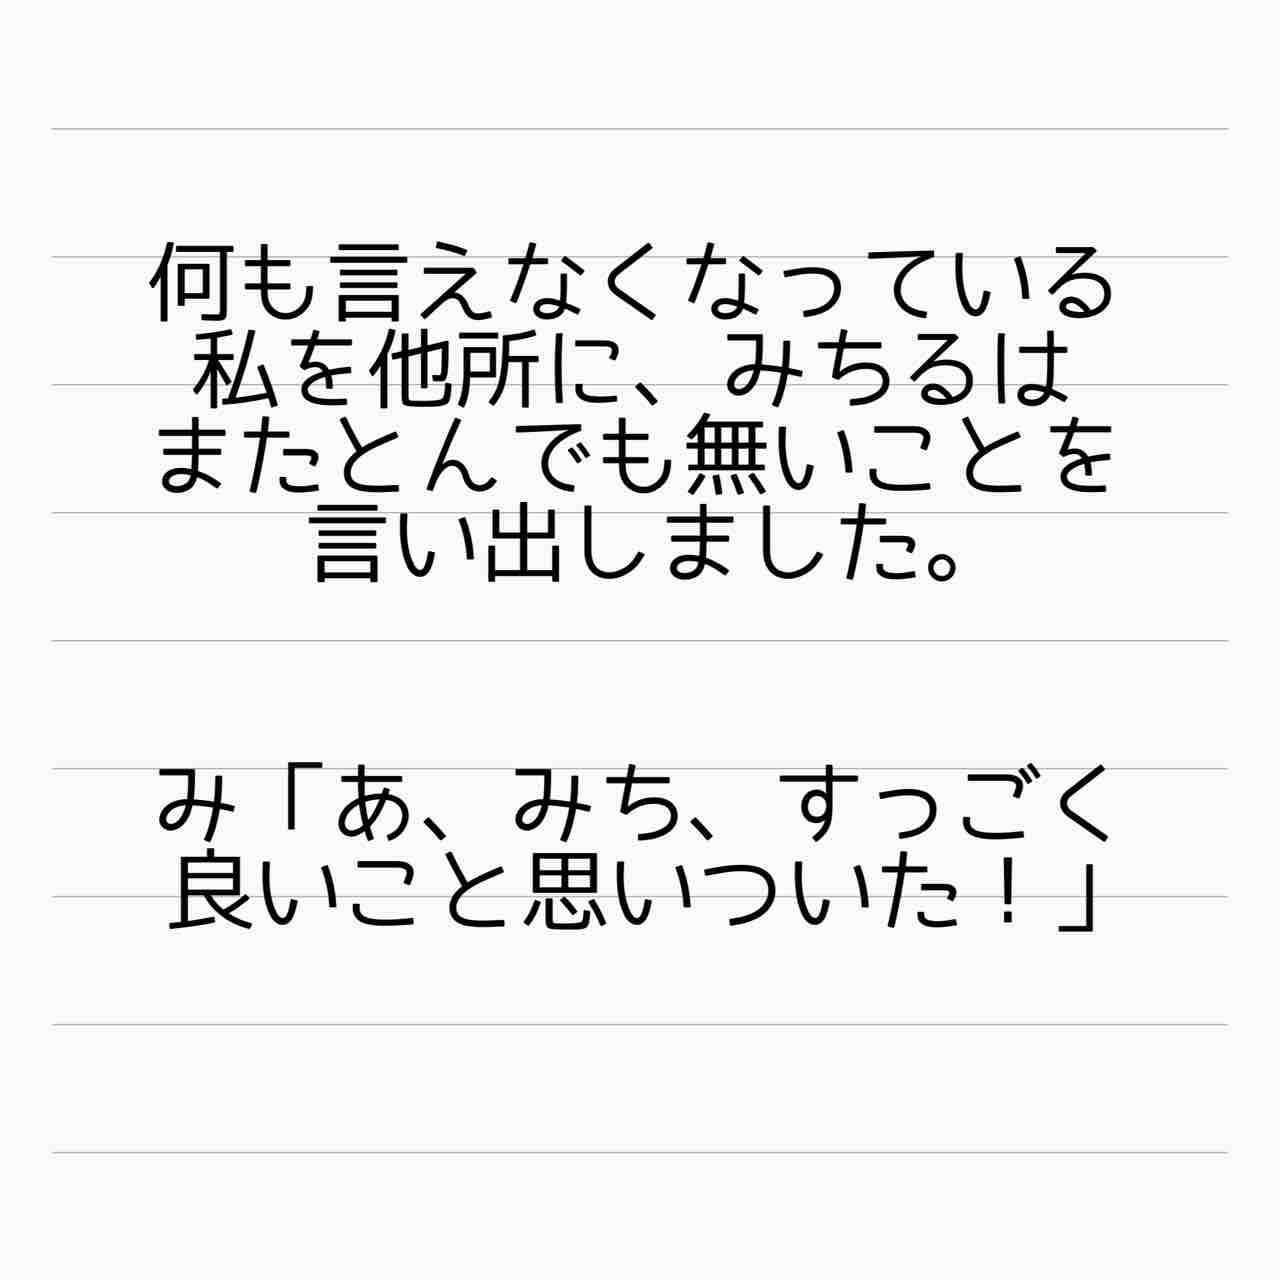 何も言えなくなっている
私を他所に、みちるは
またとんでも無いことを
言い出しました。
み「あ、みち、すっごく
良いこと思いついた！」